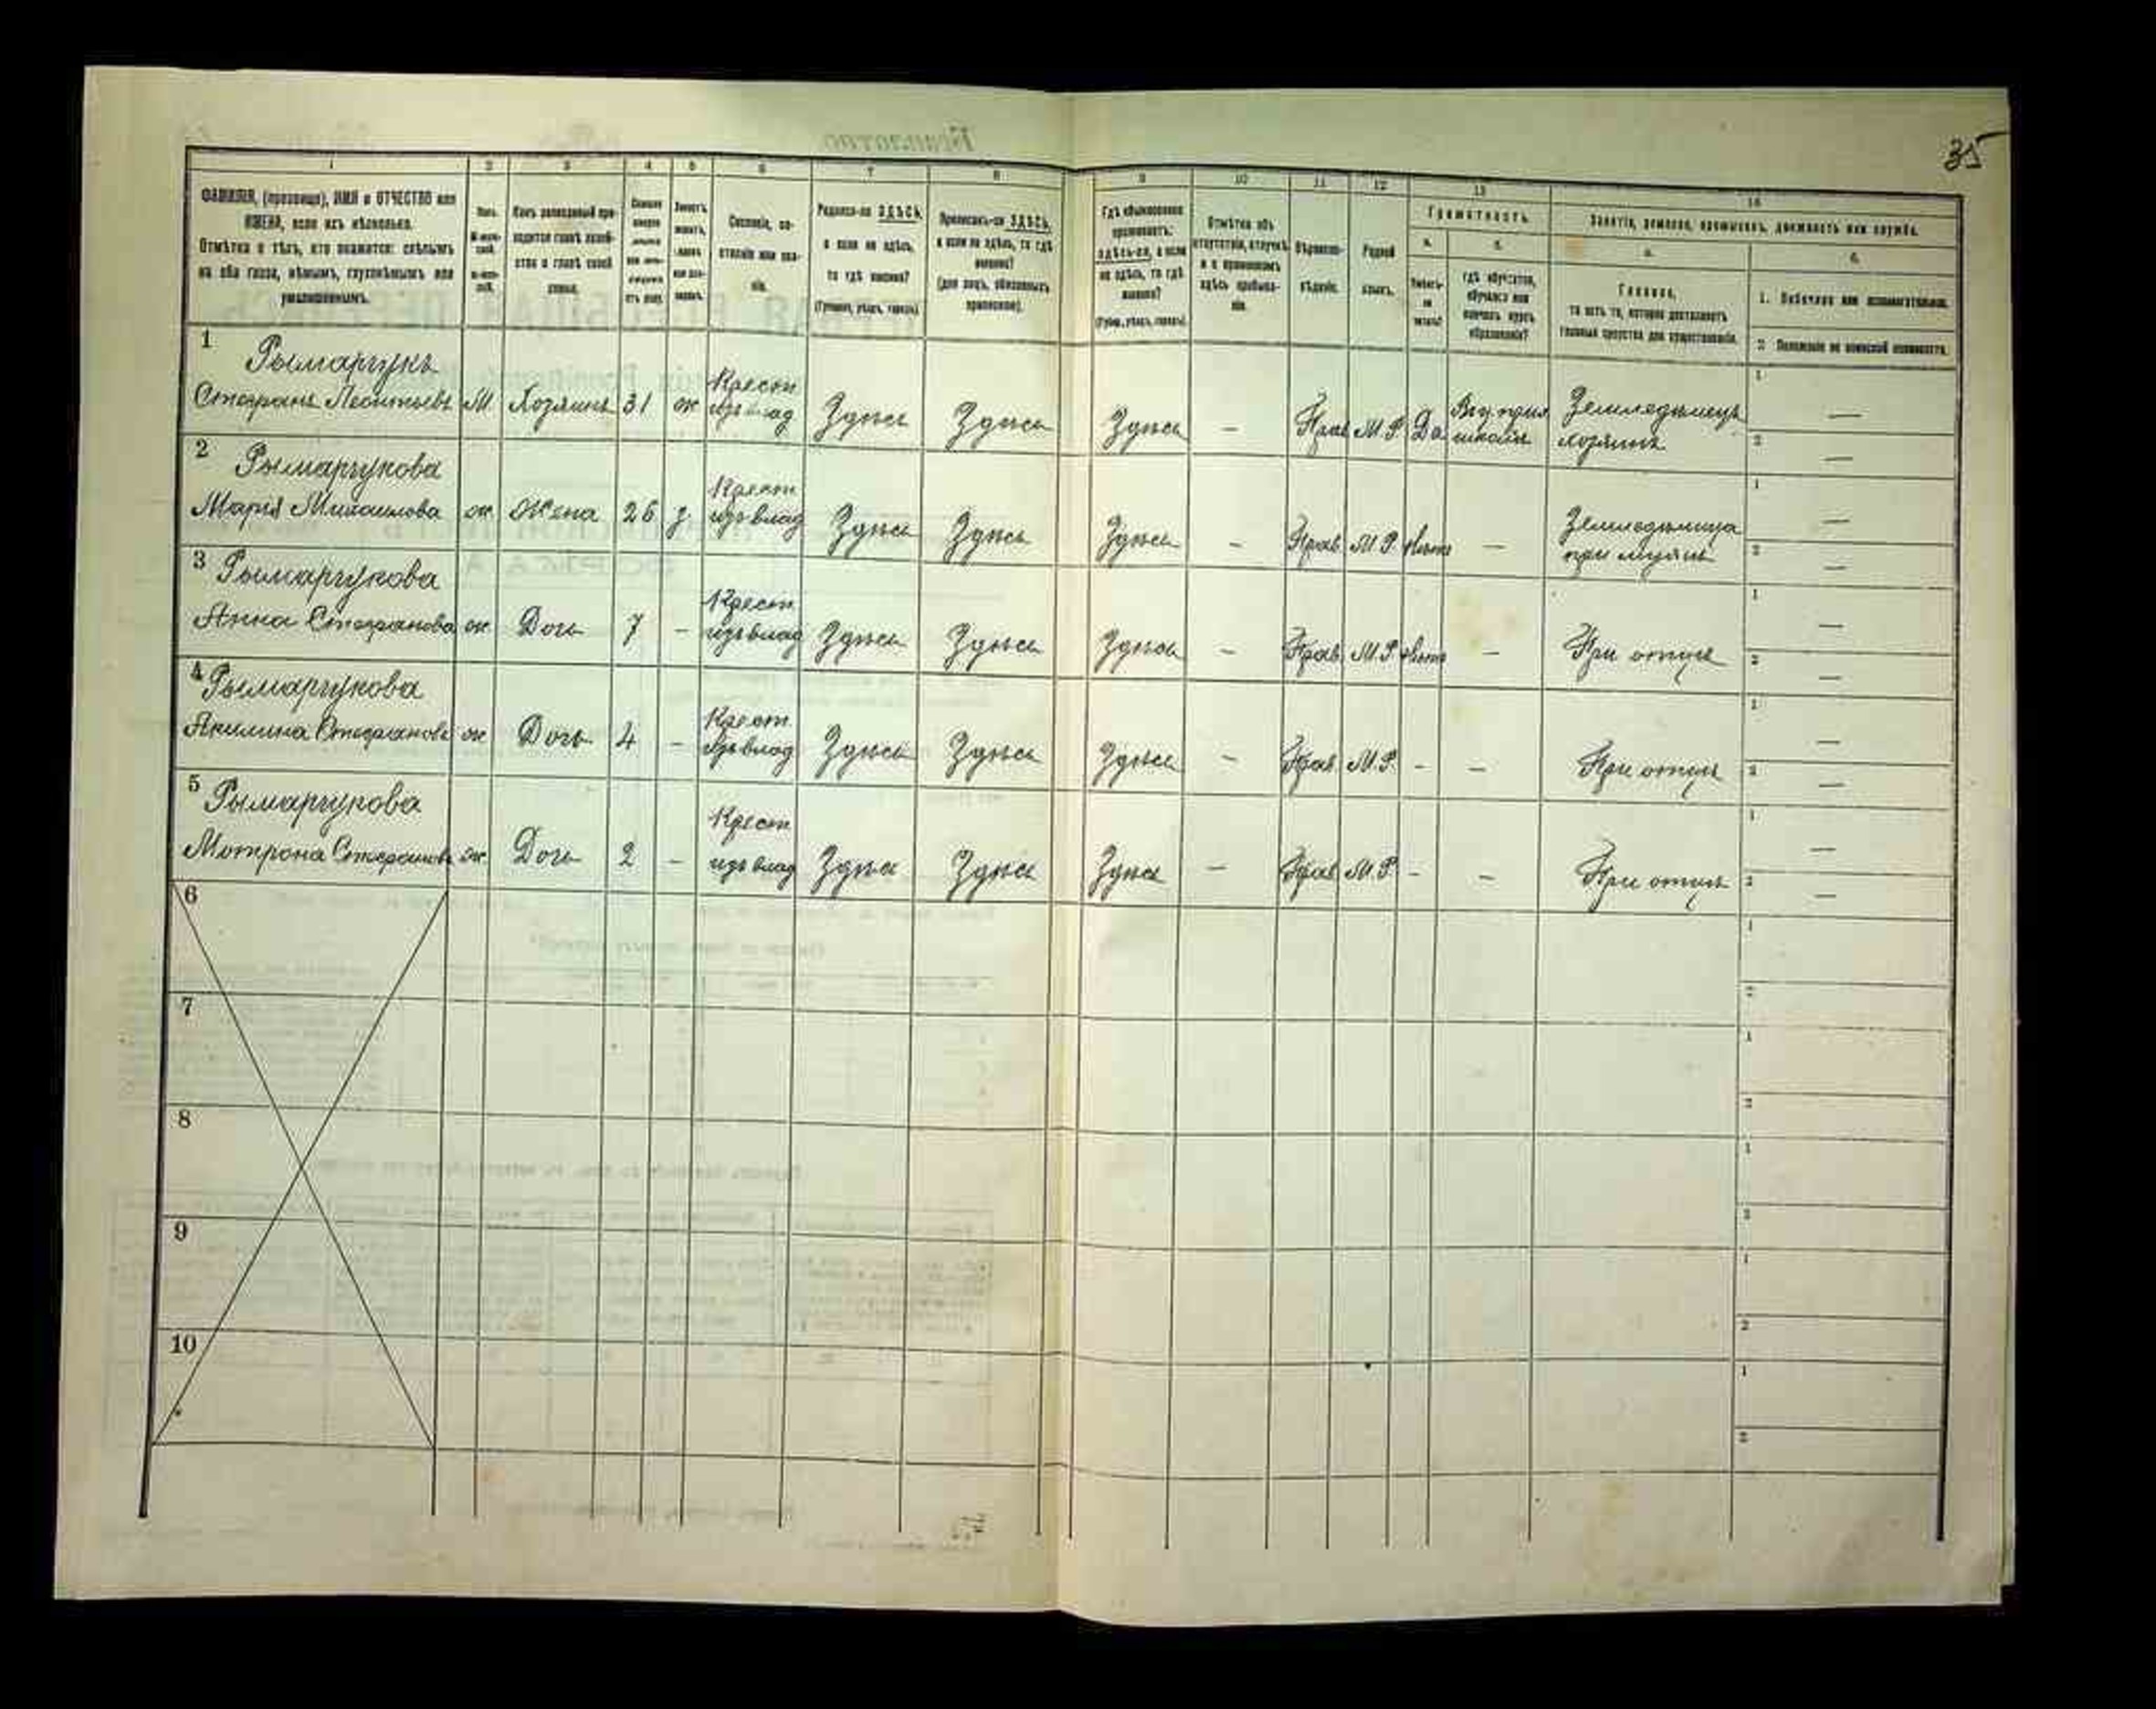 35
1 2 3 4 5 6 7 8 9 10 11 12 13 14
ФАМИЛІЯ, (прозвище), ИМЯ и ОТЧЕСТВО или
ИМЕНА, если ихъ нѣсколько.
Отмѣтка о тѣхъ, кто окажется: слѣпымъ
на оба глаза, нѣмымъ, глухонѣмымъ или
умалишеннымъ.
Полъ.
Какъ записанный при-
ходится главѣ хозяй-
ства и главѣ своей
семьи.
Сословіе, со-
стояніе или зва-
ніе.
Родился-ли ЗДѢСЬ,
а если не здѣсь,
то гдѣ именно?
(Губернія, уѣздъ, городъ)
Приписанъ-ли ЗДѢСЬ,
а если не здѣсь, то гдѣ
именно?
(для лицъ, обязанныхъ
припискою).
Гдѣ обыкновенно
проживаетъ:
здѣсь-ли, а если
не здѣсь, то гдѣ
именно?
(Губер., уѣздъ, городъ)
Отмѣтка объ
отсутствіи, отлучкѣ
и о временномъ
здѣсь пребыва-
ніи.
Вѣроиспо-
вѣданіе.
Родной
языкъ.
Грамотность.
а.
Умѣетъ-
ли
читать?
б.
гдѣ обучается,
обучался или
кончилъ курсъ
образованія?
Занятіе, ремесло, промыселъ, должность или служба.
а.
Главное,
то есть то, которое доставляетъ
главныя средства для существованія.
б.
1. Побочное или вспомогательное.
2. Положеніе по воинской повинности.
1 Рымарчукъ
Стефанъ Леонтьевъ М Хозяинъ 31 ж Крест изъ влад Здѣсь Здѣсь Здѣсь – Прав М.Р. Да школѣ Земледѣлецъ хозяинъ 1 — 2 —
2 Рымарчукова
Марія Михайлова ж Жена 26 з Крест изъ влад Здѣсь Здѣсь Здѣсь – Прав М.Р. Нѣтъ – Земледѣлица при мужѣ 1 — 2 —
3 Рымарчукова
Анна Стефанова ж Дочь 7 – Крест изъ влад Здѣсь Здѣсь Здѣсь – Прав М.Р. Нѣтъ – При отцѣ 1 — 2 —
4 Рымарчукова
Акилина Стефанова ж Дочь 4 – Крест изъ влад Здѣсь Здѣсь Здѣсь – Прав М.Р. – – При отцѣ 1 — 2 —
5 Рымарчукова
Мотрона Стефанова ж Дочь 2 – Крест изъ влад Здѣсь Здѣсь Здѣсь – Прав М.Р. – – При отцѣ 1 — 2 —
6 1 2
7 1 2
8 1 2
9 1 2
10 1 2